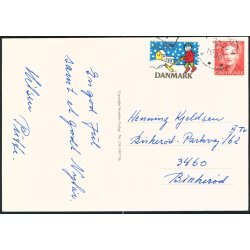 En god Jul
samt et godt Nytår.
Hilsen
DANMARK
DANMARK
Henning Kjeldsen
Birkerød-Parkvej/62
3460
Birkerød